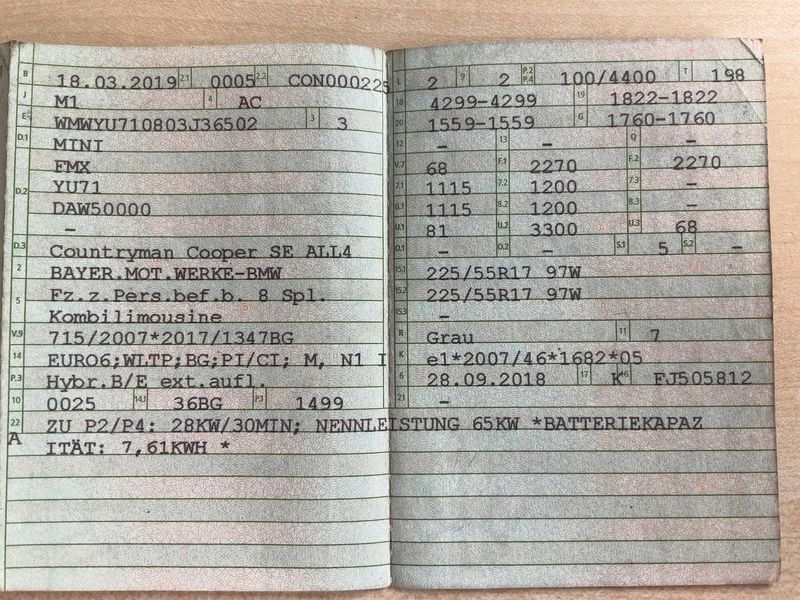 B 18.03.2019 2.1 0005 2.2 CON000225
J M1 4 AC
E WMWYU710803J36502 3 3
D.1 MINI
FMX
D.2 YU71
DAW50000
–
D.3 Countryman Cooper SE ALL4
2 BAYER.MOT.WERKE-BMW
5 Fz.z.Pers.bef.b. 8 Spl.
Kombilimousine
V.9 715/2007*2017/1347BG
14 EURO6;WLTP;BG;PI/CI; M, N1 I
P.3 Hybr.B/E ext.aufl.
10 0025 14.1 36BG P.1 1499
22 ZU P2/P4: 28KW/30MIN; NENNLEISTUNG 65KW *BATTERIEKAPAZ
A ITÄT: 7,61KWH *
L 2 9 2 P.2 P.4 100/4400 T 198
18 4299–4299 19 1822–1822
20 1559–1559 G 1760–1760
12 – 13 – Q –
V.7 68 F.1 2270 F.2 2270
7.1 1115 7.2 1200 7.3 –
8.1 1115 8.2 1200 8.3 –
U.1 81 U.2 3300 U.3 68
O.1 – O.2 – S.1 5 S.2 –
15.1 225/55R17 97W
15.2 225/55R17 97W
15.3 –
R Grau 11 7
K e1*2007/46*1682*05
6 28.09.2018 17 K 16 FJ505812
21 –